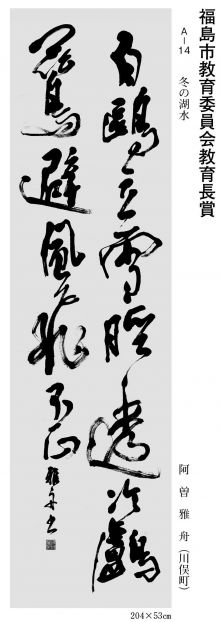 福島市教育委員会教育長賞
A-14 冬の湖水
阿曽雅舟(川俣町)
白鷗立雪脛透冷鸕
鶿避風飛不正 雅舟書
204×53cm